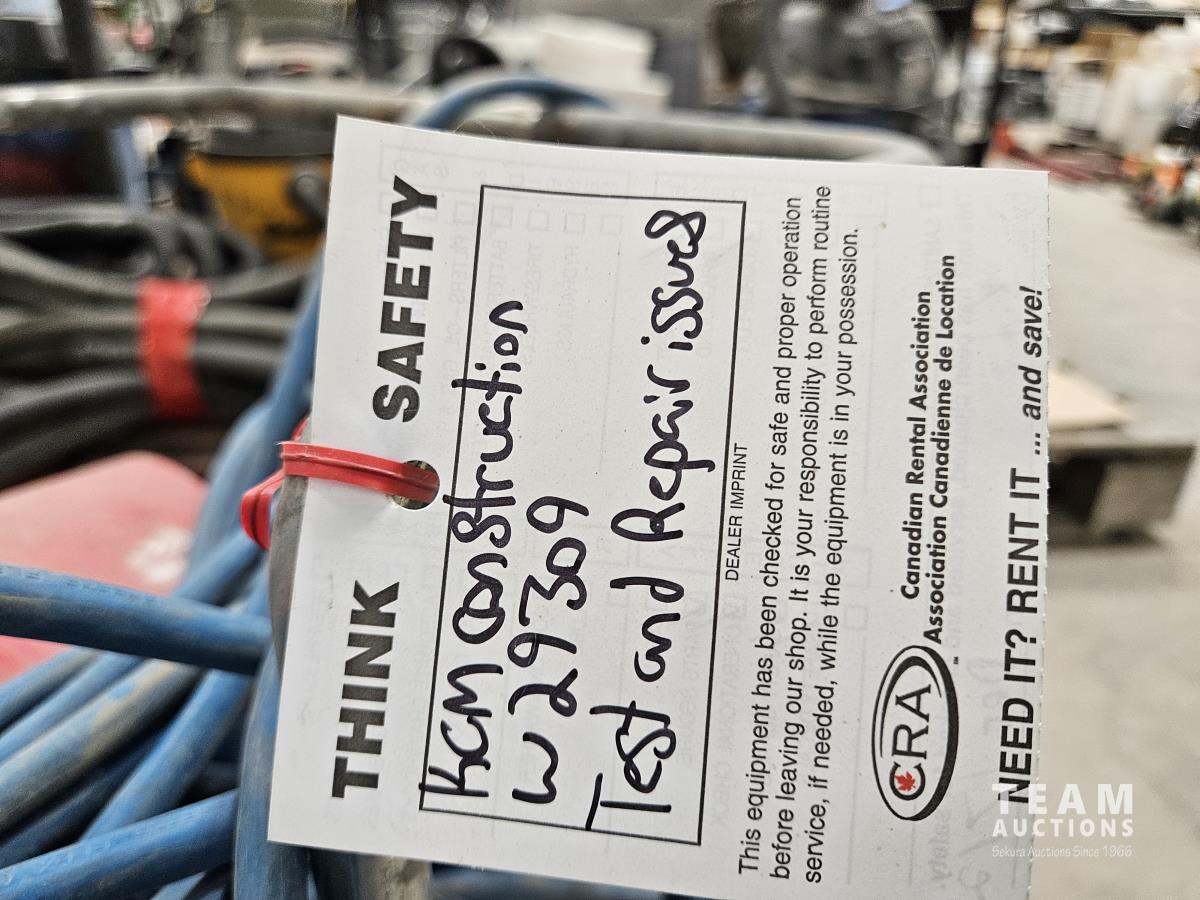 THINK SAFETY
KCM Construction
W 29309
Test and Repair issues
DEALER IMPRINT
This equipment has been checked for safe and proper operation
before leaving our shop. It is your responsibility to perform routine
service, if needed, while the equipment is in your possession.
CRA™
Canadian Rental Association
Association Canadienne de Location
NEED IT? RENT IT ... and save!
TEAM
AUCTIONS
Sekura Auctions Since 1966